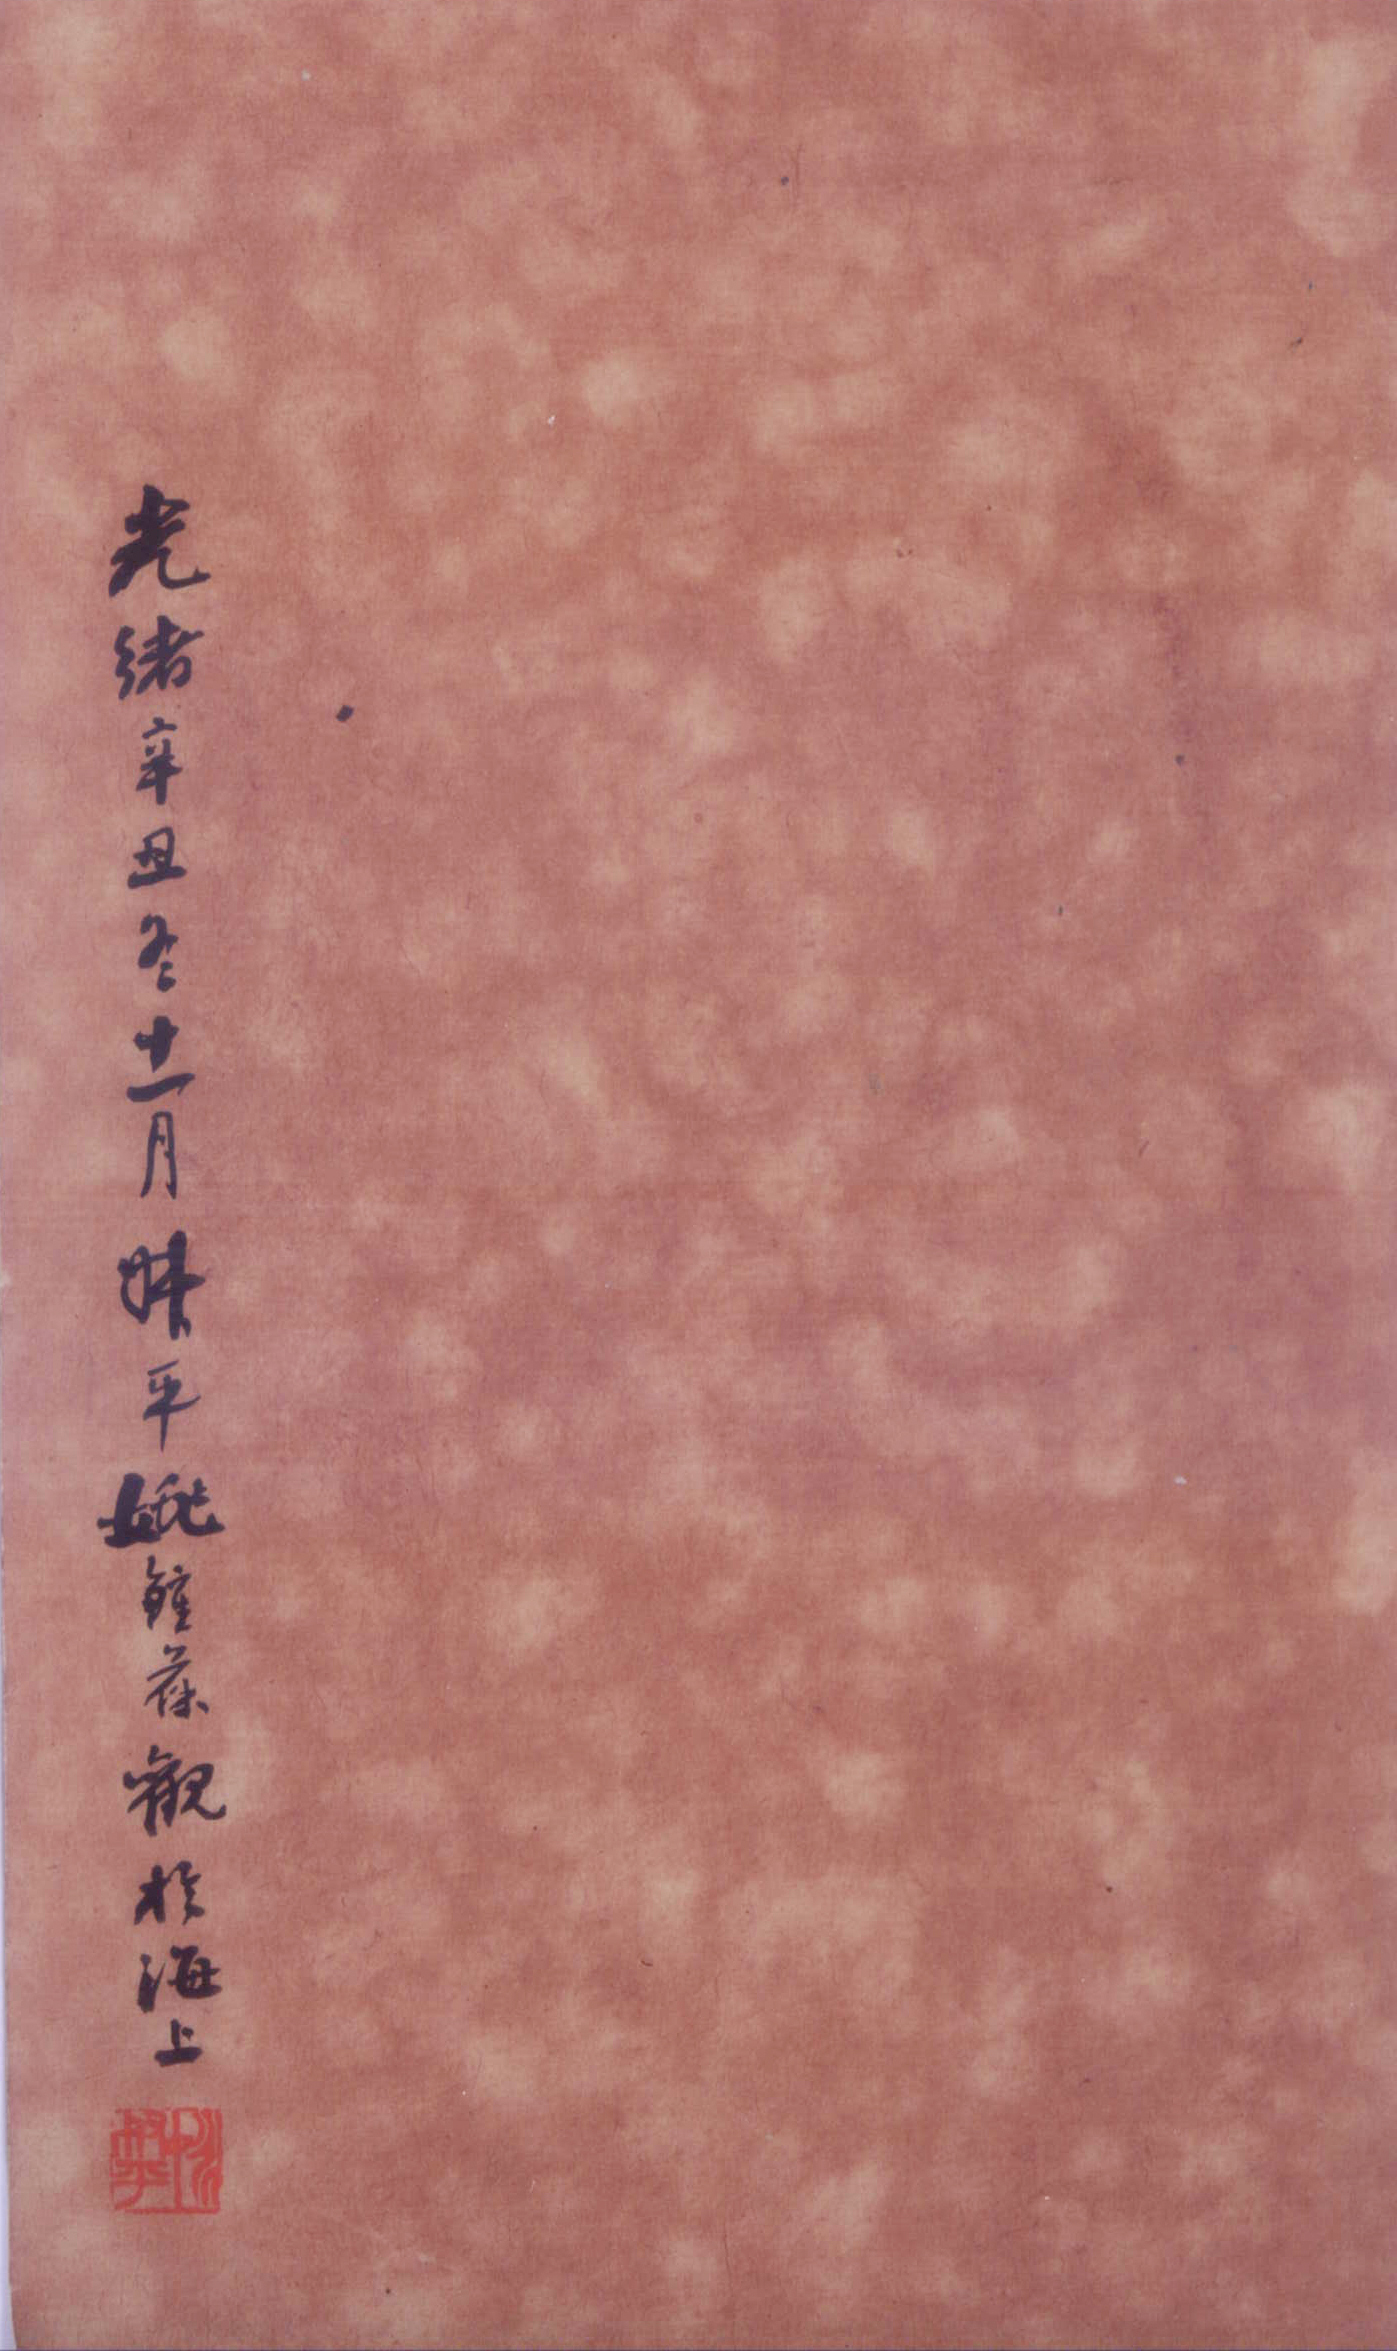 光緒辛丑冬十一月叔平姚鍾葆觀於海上